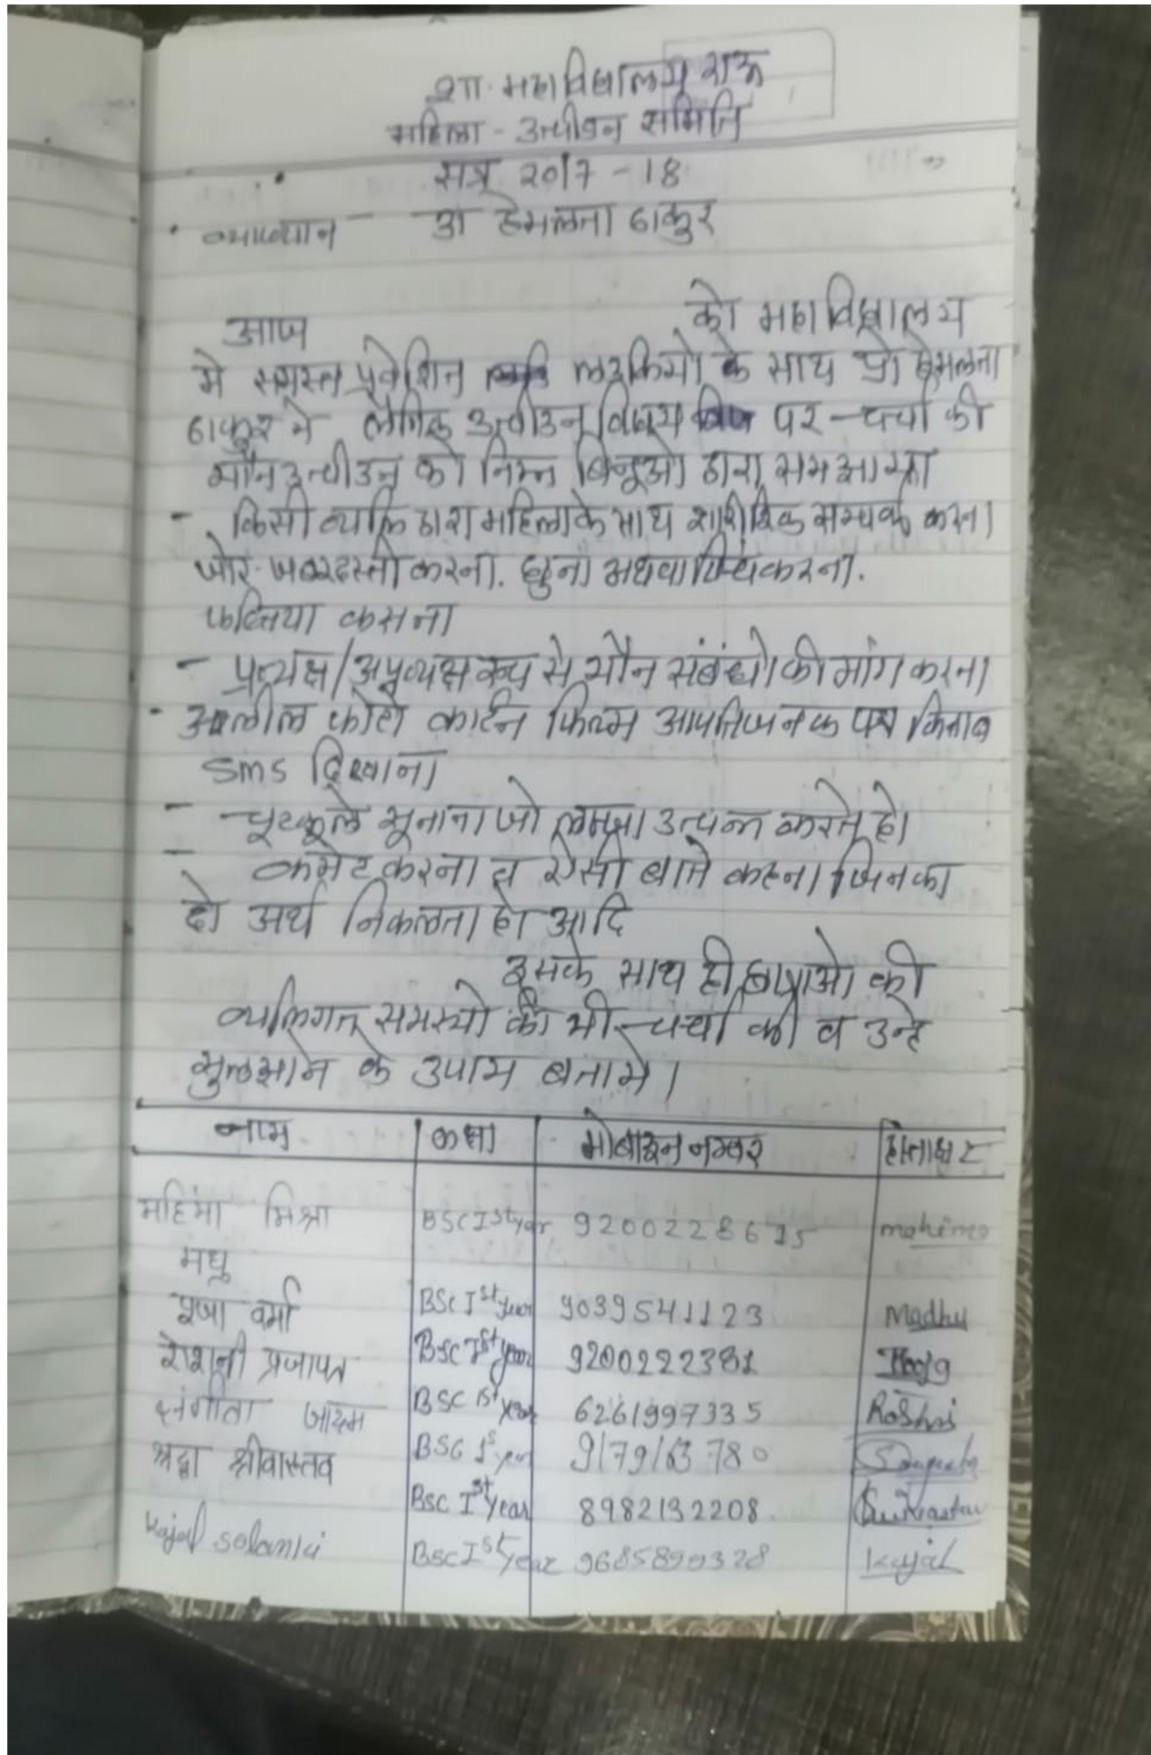 शा. महाविद्यालय राऊ
महिला - उत्पीडन समिति
सत्र 2017 - 18
व्याख्यान - डा हेमलता ठाकुर
आज को महाविद्यालय
मे समस्त प्रवेशित लडकियो के साथ प्रो हेमलता
ठाकुर ने लैंगिक उत्पीडन विषय पर चर्चा की
यौन उत्पीडन को निम्न बिन्दूओ द्वारा समझाया
- किसी व्यक्ति द्वारा महिला के साथ शारीरिक सम्पर्क करना
जोर जबरदस्ती करना. छुना अथवा करना.
फब्तिया कसना
- प्रत्यक्ष/अप्रत्यक्ष रूप से यौन संबंधो की मांग करना
- अश्लील फोटो कार्टून फिल्म आपत्तिजनक पत्र किताब
sms दिखाना
- चूटकूले सूनाना जो लज्जा उत्पन्न करते हो
- कमेंट करना व ऐसी बाते कहना जिनका
दो अर्थ निकलता हो आदि
इसके साथ ही छात्राओ की
व्यक्तिगत समस्यो की भी चर्चा की व उन्हे
सुलझाने के उपाय बताये।
नाम कक्षा मोबाइन नम्बर हस्ताक्षर
महिमा मिश्रा BSC Ist year 9200228615 mahima
मधु
पूजा वर्मा BSc Ist year 9039541123 Madhu
रोशनी प्रजापत BSC Ist year 9200222381
संगीता जायम BSC Ist year 6261997335 Roshni
श्रद्धा श्रीवास्तव BSC Ist year 9179163780 Sangeeta
BSC Ist Year 8982132208
Kajal Solanki BSC Ist year 9685890328 Kajal